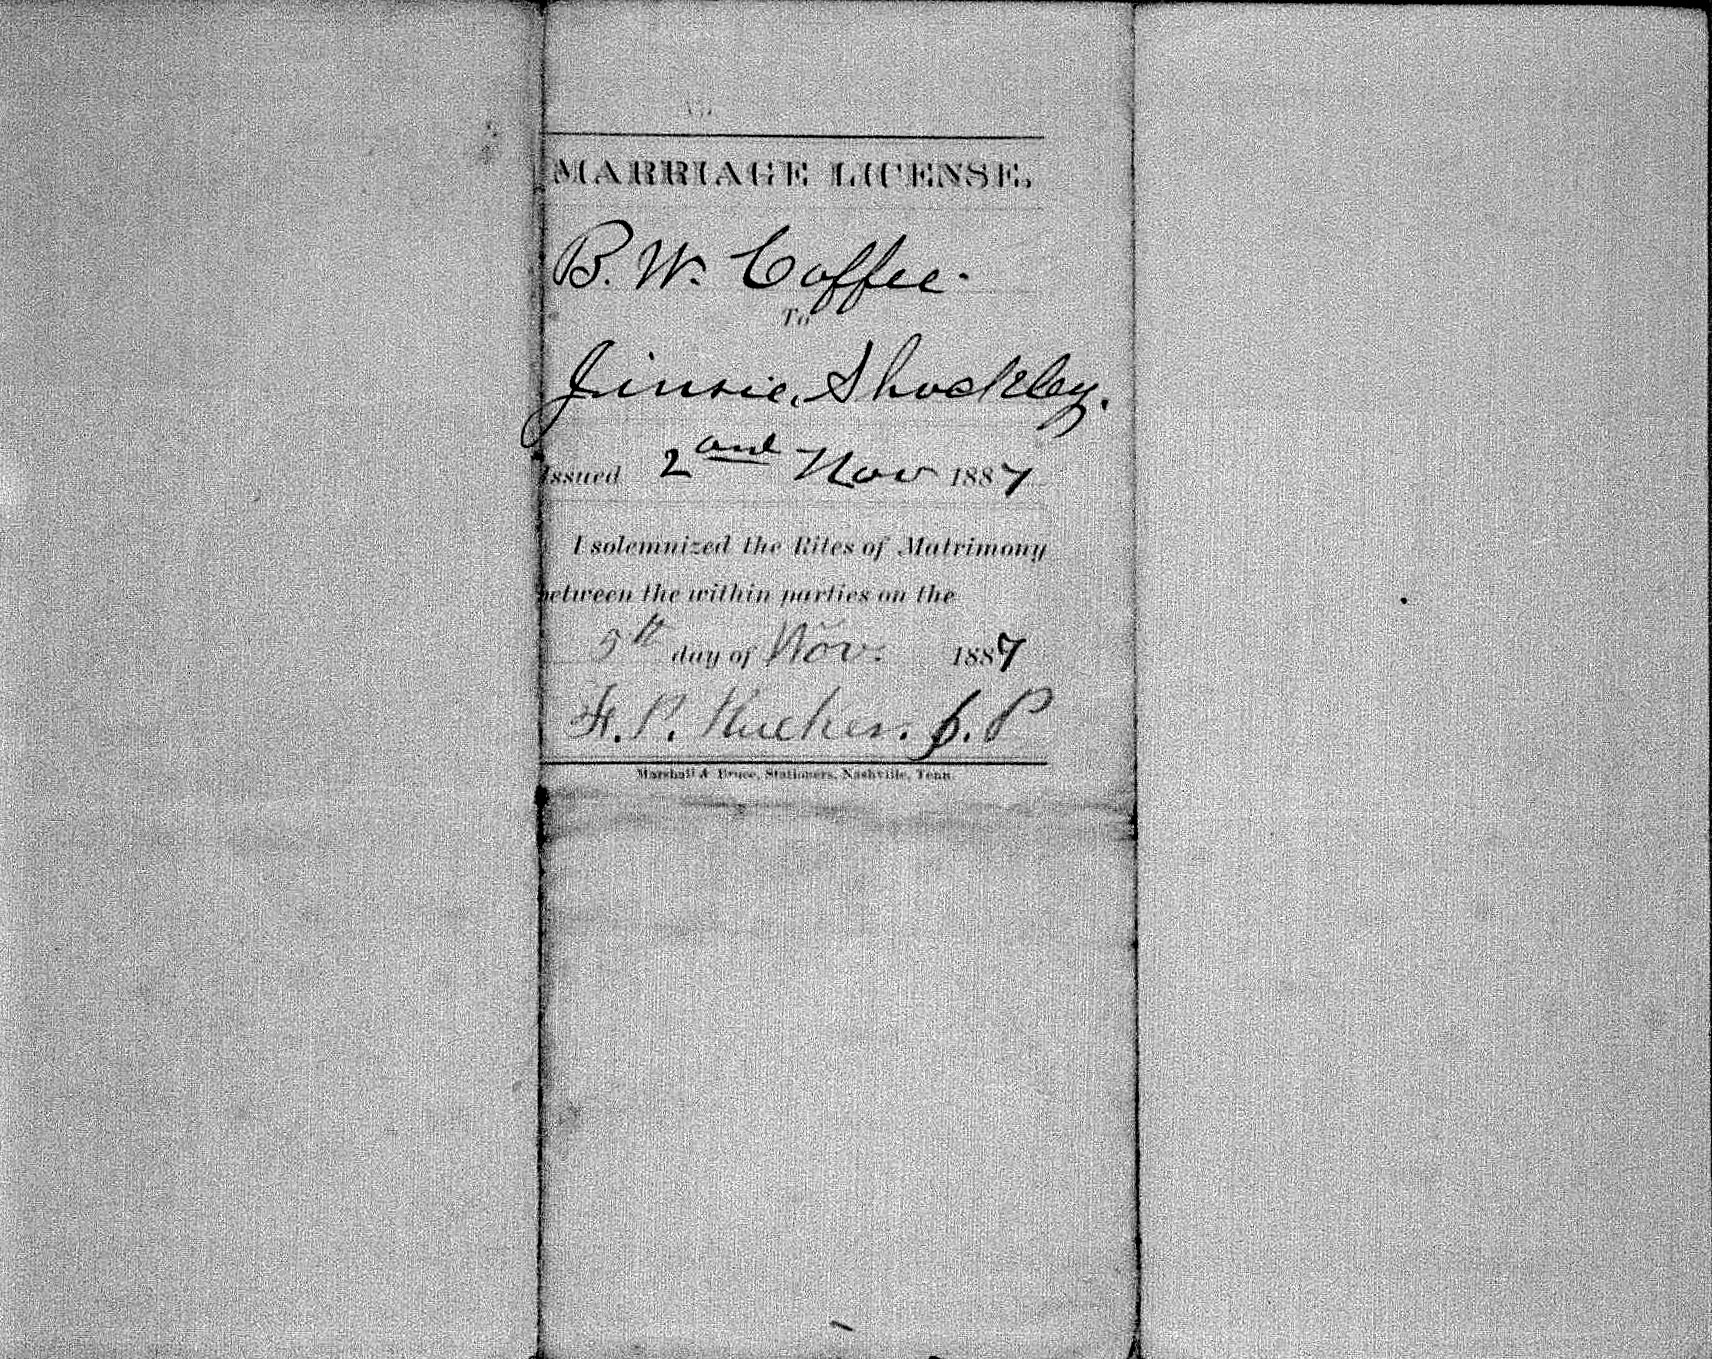 No.
MARRIAGE LICENSE,
B. W. Coffee.
To
Jinsie, Shockley.
Issued 2 and Nov 1887
I solemnized the Rites of Matrimony
between the within parties on the
5th day of Nov. 1887
P. J. P
Marshall & Bruce, Stationers, Nashville, Tenn.